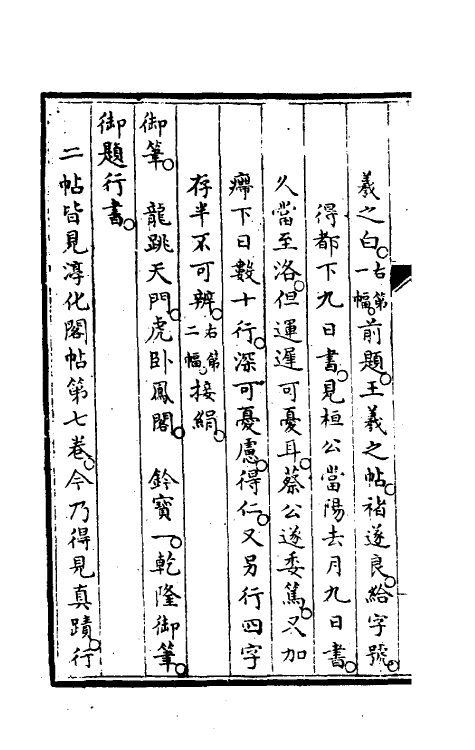 羲之白。右第一幅。前題。王羲之帖。褚遂良。給字號。
得都下九日書。見桓公當陽去月九日書。
久當至洛。但運遲可憂耳。蔡公遂委篤。又加
癤下日數十行。深可憂慮。得仁。又另行四字
存半不可辨。右第二幅。接絹。
御筆。 龍跳天門。虎卧鳳閣。 鈐寶一。乾隆御筆。
御題行書。
二帖皆見淳化閣帖第七卷。今乃得見真蹟。行